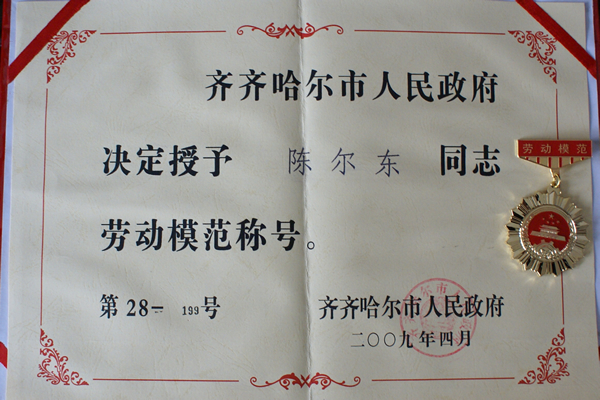 齐齐哈尔市人民政府
决定授予 陈尔东 同志
劳动模范称号。
劳动模范
第28—199号
齐齐哈尔市人民政府
二〇〇九年四月